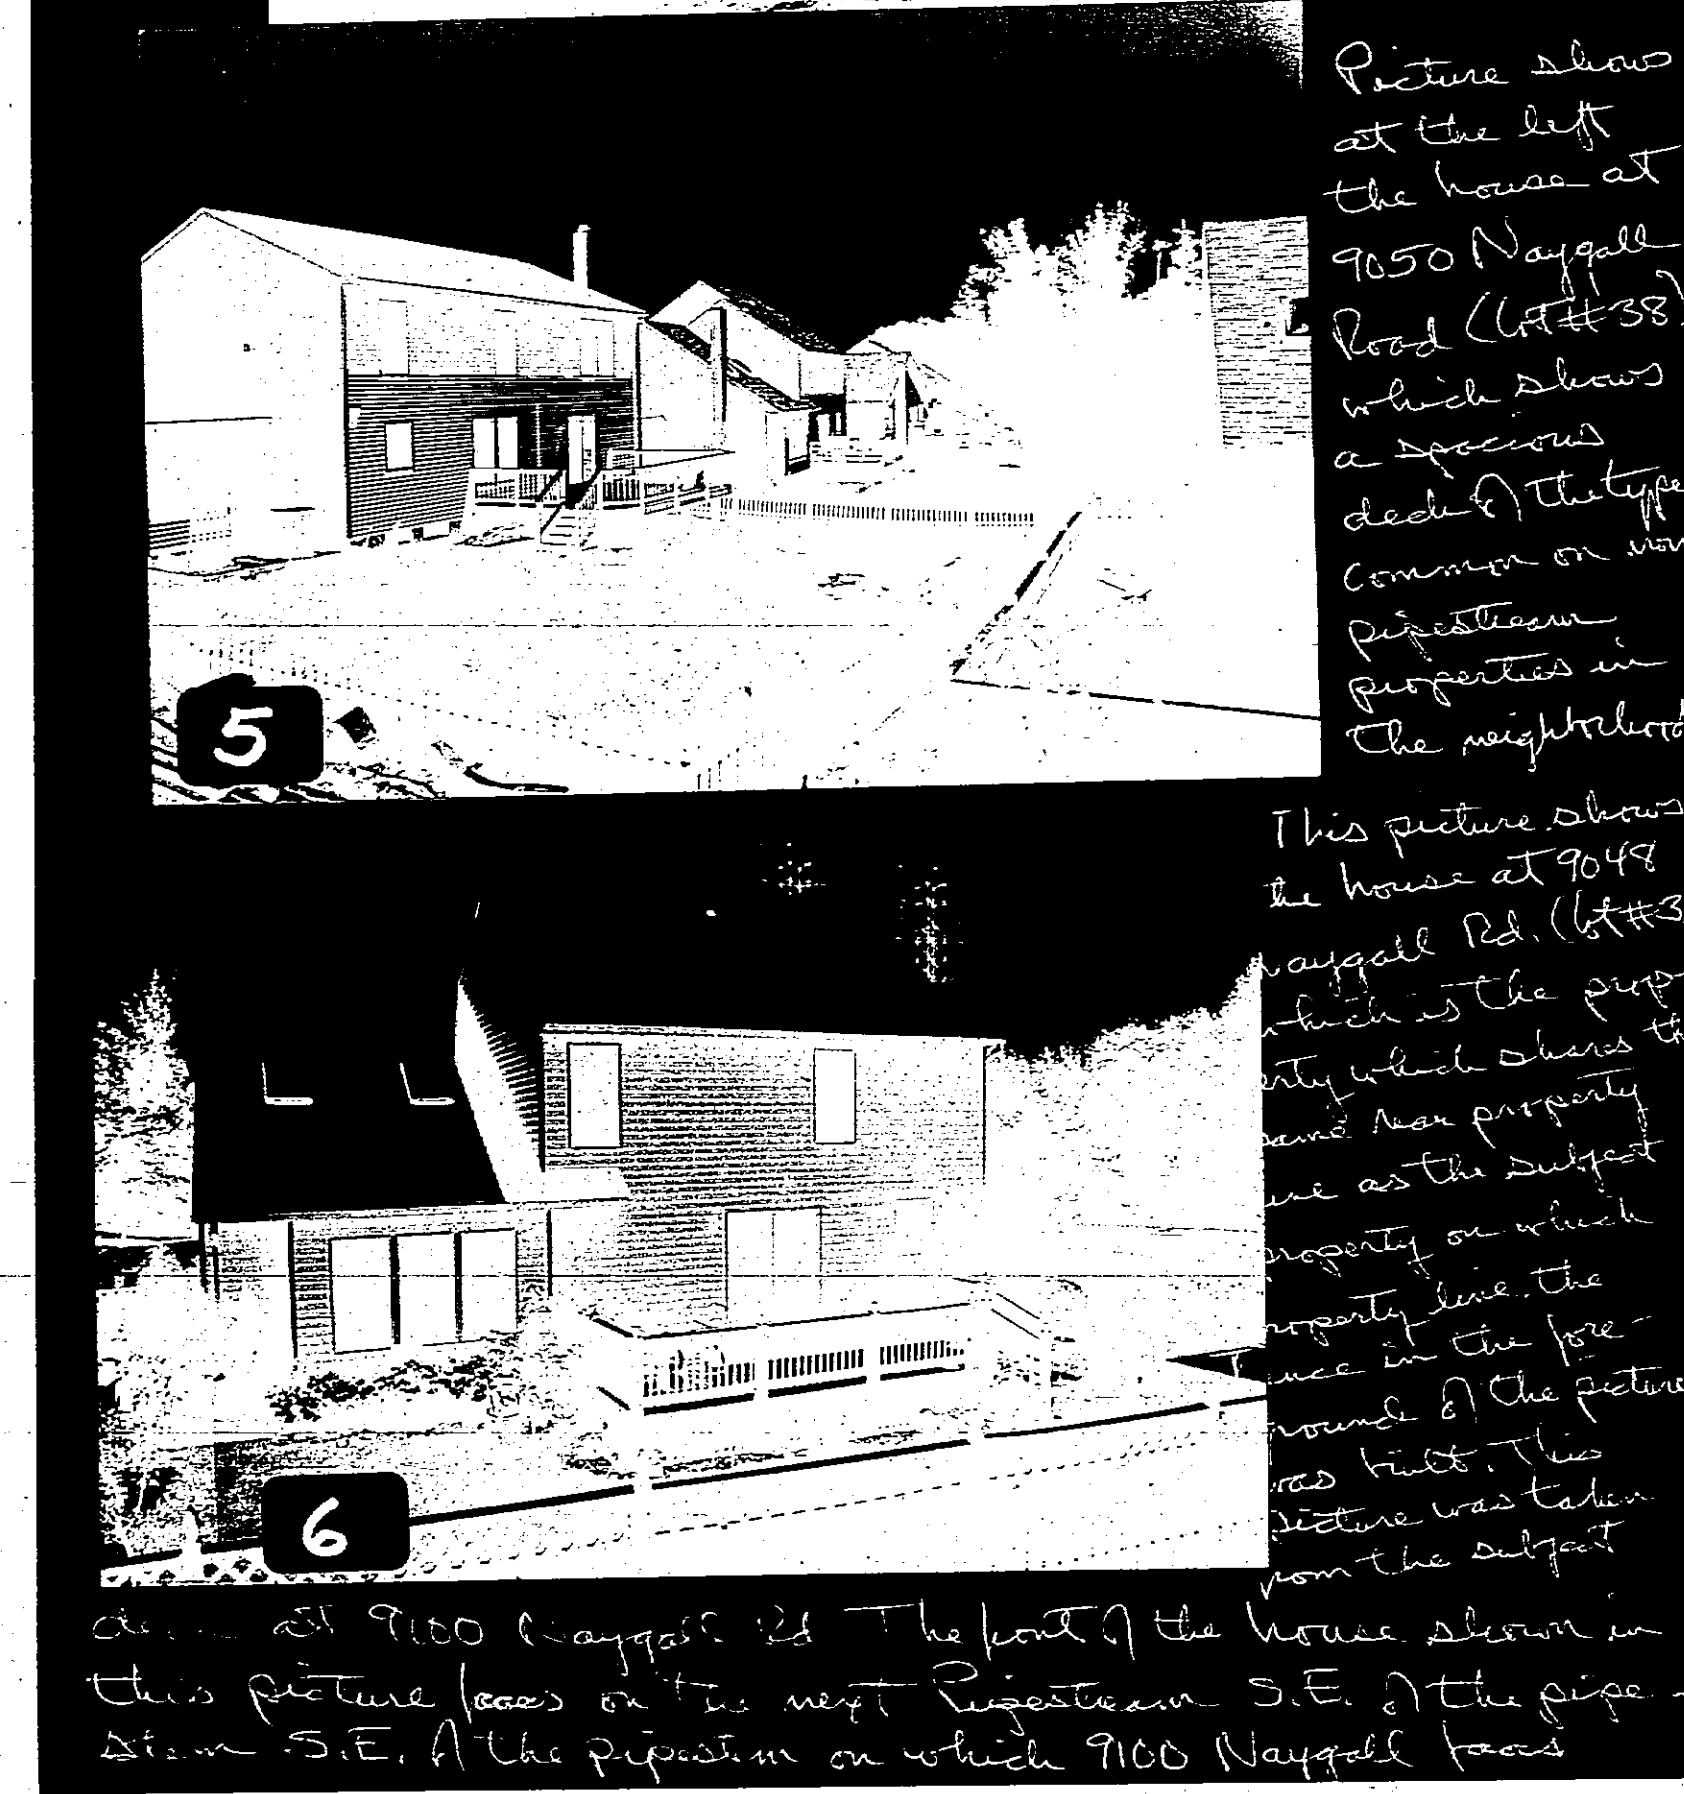 Picture shows
at the left
the house at
9050 Naygall
Road (lot #38)
which shows
a spacious
deck of the type
common on non
pipestream
properties in
the neighborhood
5
This picture shows
he house at 9048
Naygall Rd. (lot #3
which is the prop-
erty which shares th
same rear property
ine as the subject
property on which
property line the
ence in the fore-
round of the picture
was built. This
picture was taken
from the subject
6
at 9100 Naygall Rd The front of the house shown in
this picture faces on the next Pipestream S.E. of the pipe-
stem S.E. of the pipestem on which 9100 Naygall faces